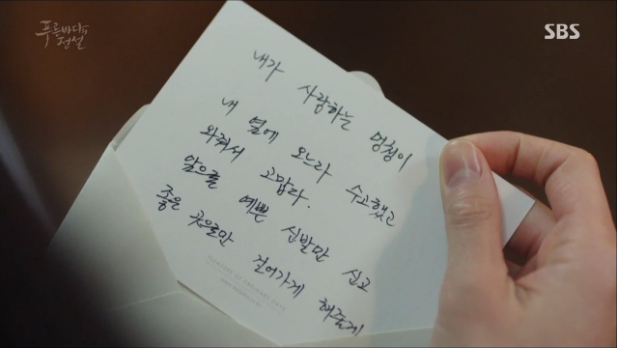 푸른바다의
전설
SBS
내가 사랑하는 멍청이
내 옆에 오느라 수고했고
와줘서 고맙다.
앞으로 예쁜 신발만 신고
좋은 곳으로만 걸어가게 해줄게